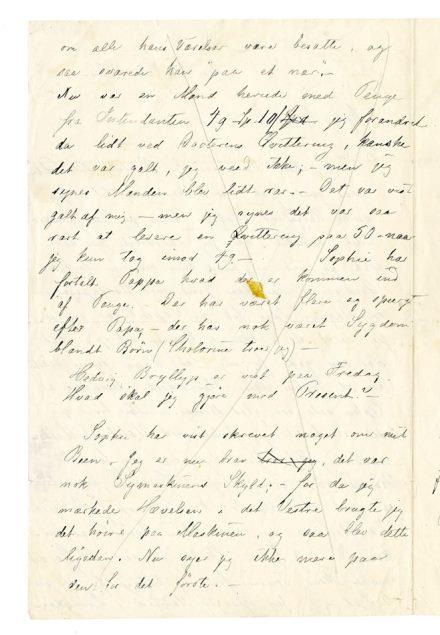 om alle hans Værelser være besatte, og
saa svarede han "paa et nær".
Nu var en Mand herude med Penge
fra Intendanten 49 - jeg forandred
da lidt ved Doctorens Qvittering, kanske
det var galt, jeg veed ikke; - men jeg
synes Manden blev lidt rar. - Det var vist
galt af mig. - men jeg synes det var saa
rart at levere en Qvittering paa 50 - naar
jeg kun tog imod 49 - Sophie har
fortalt Pappa hvad der er kommen ind
af Penge. Der har været flere og spurgt
efter Papa, - der har nok været Sygdom
blandt Børn (Skolerine troer jeg) -
Hedvig Bryllup er vist paa Fredag.
Hvad skal jeg gjøre med Present? -
Sophie har vist skrevet noget om mit
Been. - Jeg er nu bra troer jeg, det var
nok Symaskinens Skyld; - for da jeg
mærkede Hævelsen i det Venstre brugte jeg
det høire paa Maskinen, og saa blev dette
ligedan. Nu syer jeg ikke mere paa
den for det første. -